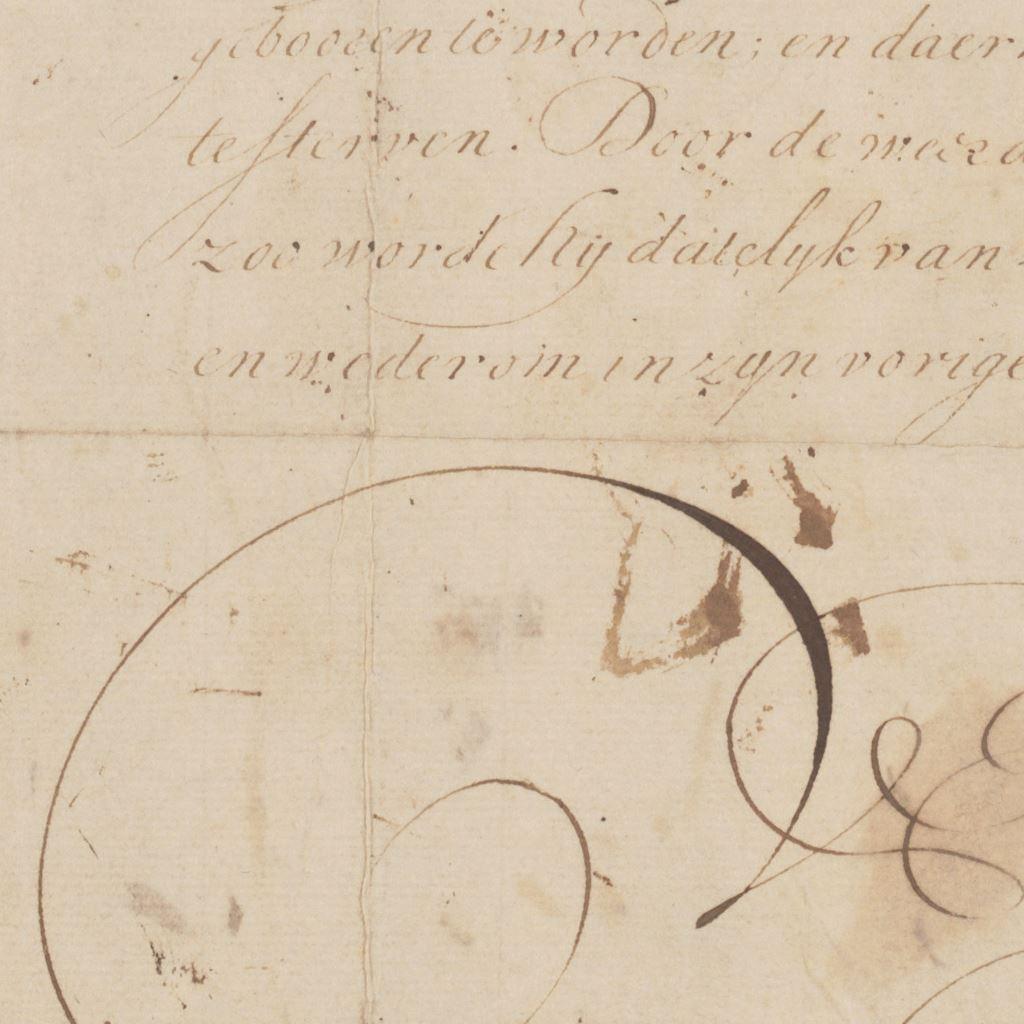 gebooren te worden; en daer
te sterven. Door de
zoo worde hij datelyk van
en wederom in zyn vorige
E